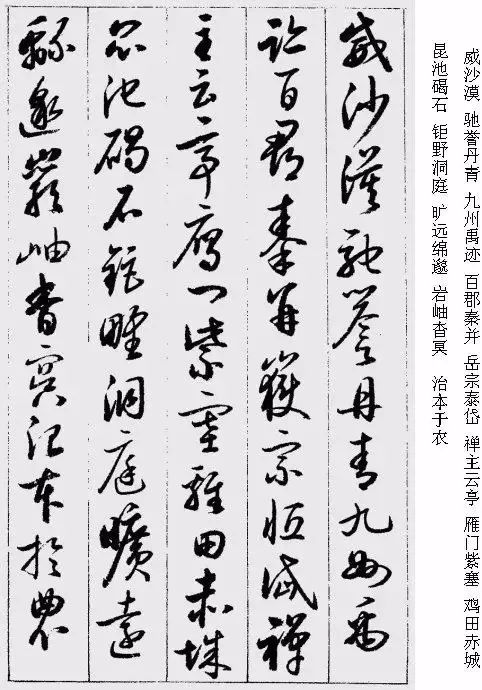 威沙漠 驰誉丹青 九州禹迹 百郡秦并 岳宗泰岱 禅主云亭 雁门紫塞 鸡田赤城
昆池碣石 钜野洞庭 旷远绵邈 岩岫杳冥 治本于农
威沙漠馳譽丹青九州禹
跡百郡秦并嶽宗恒岱禪
主云亭鴈門紫塞雞田赤城
昆池碣石鉅野洞庭曠遠
緜邈巖岫杳冥治本於農